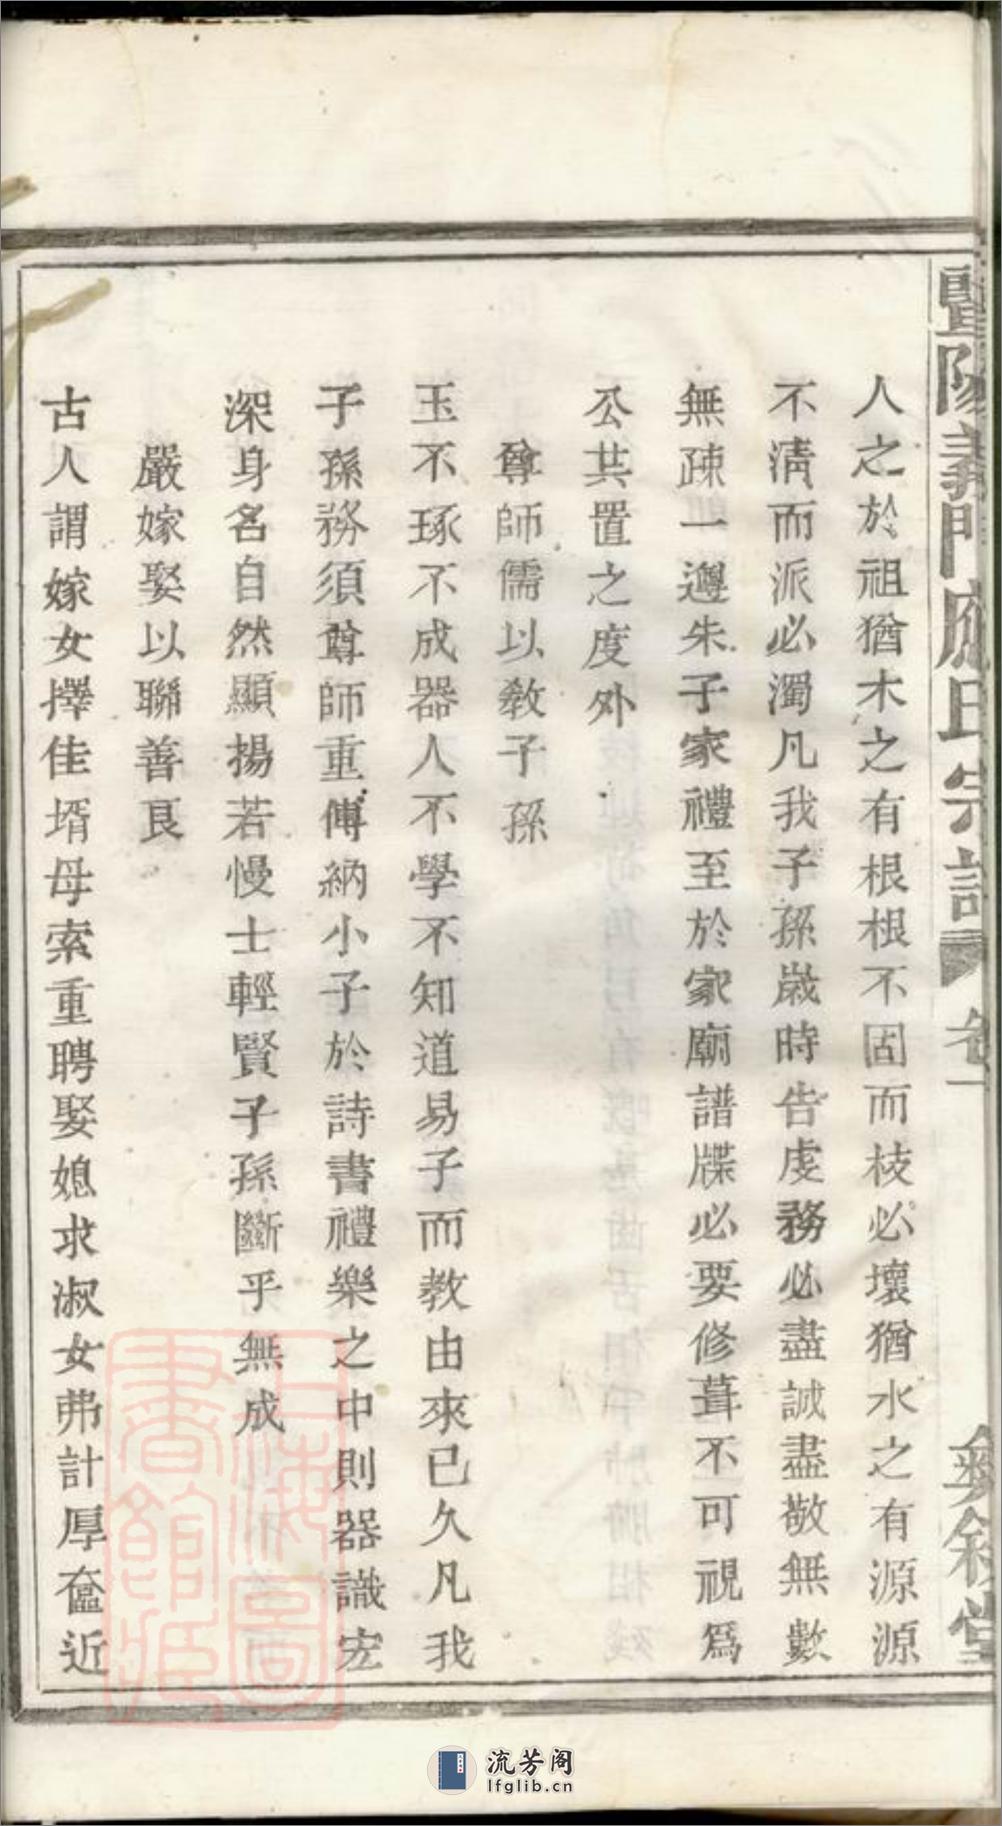 暨陽義門應氏宗譜 卷一 敘堂
人之於祖猶木之有根根不固而枝必壞猶水之有源源
不清而派必濁凡我子孫歲時告虔務必盡誠盡敬無數
無疎一遵朱子家禮至於家廟譜牒必要修葺不可視爲
公共置之度外
尊師儒以敎子孫
玉不琢不成器人不學不知道易子而教由來已久凡我
子孫務須尊師重傅納小子於詩書禮樂之中則器識宏
深身名自然顯揚若慢士輕賢子孫斷乎無成
嚴嫁娶以聯善良
古人謂嫁女擇佳壻母索重聘娶媳求淑女弗計厚奩近
上海圖書館藏
流芳阁
lfglib.cn